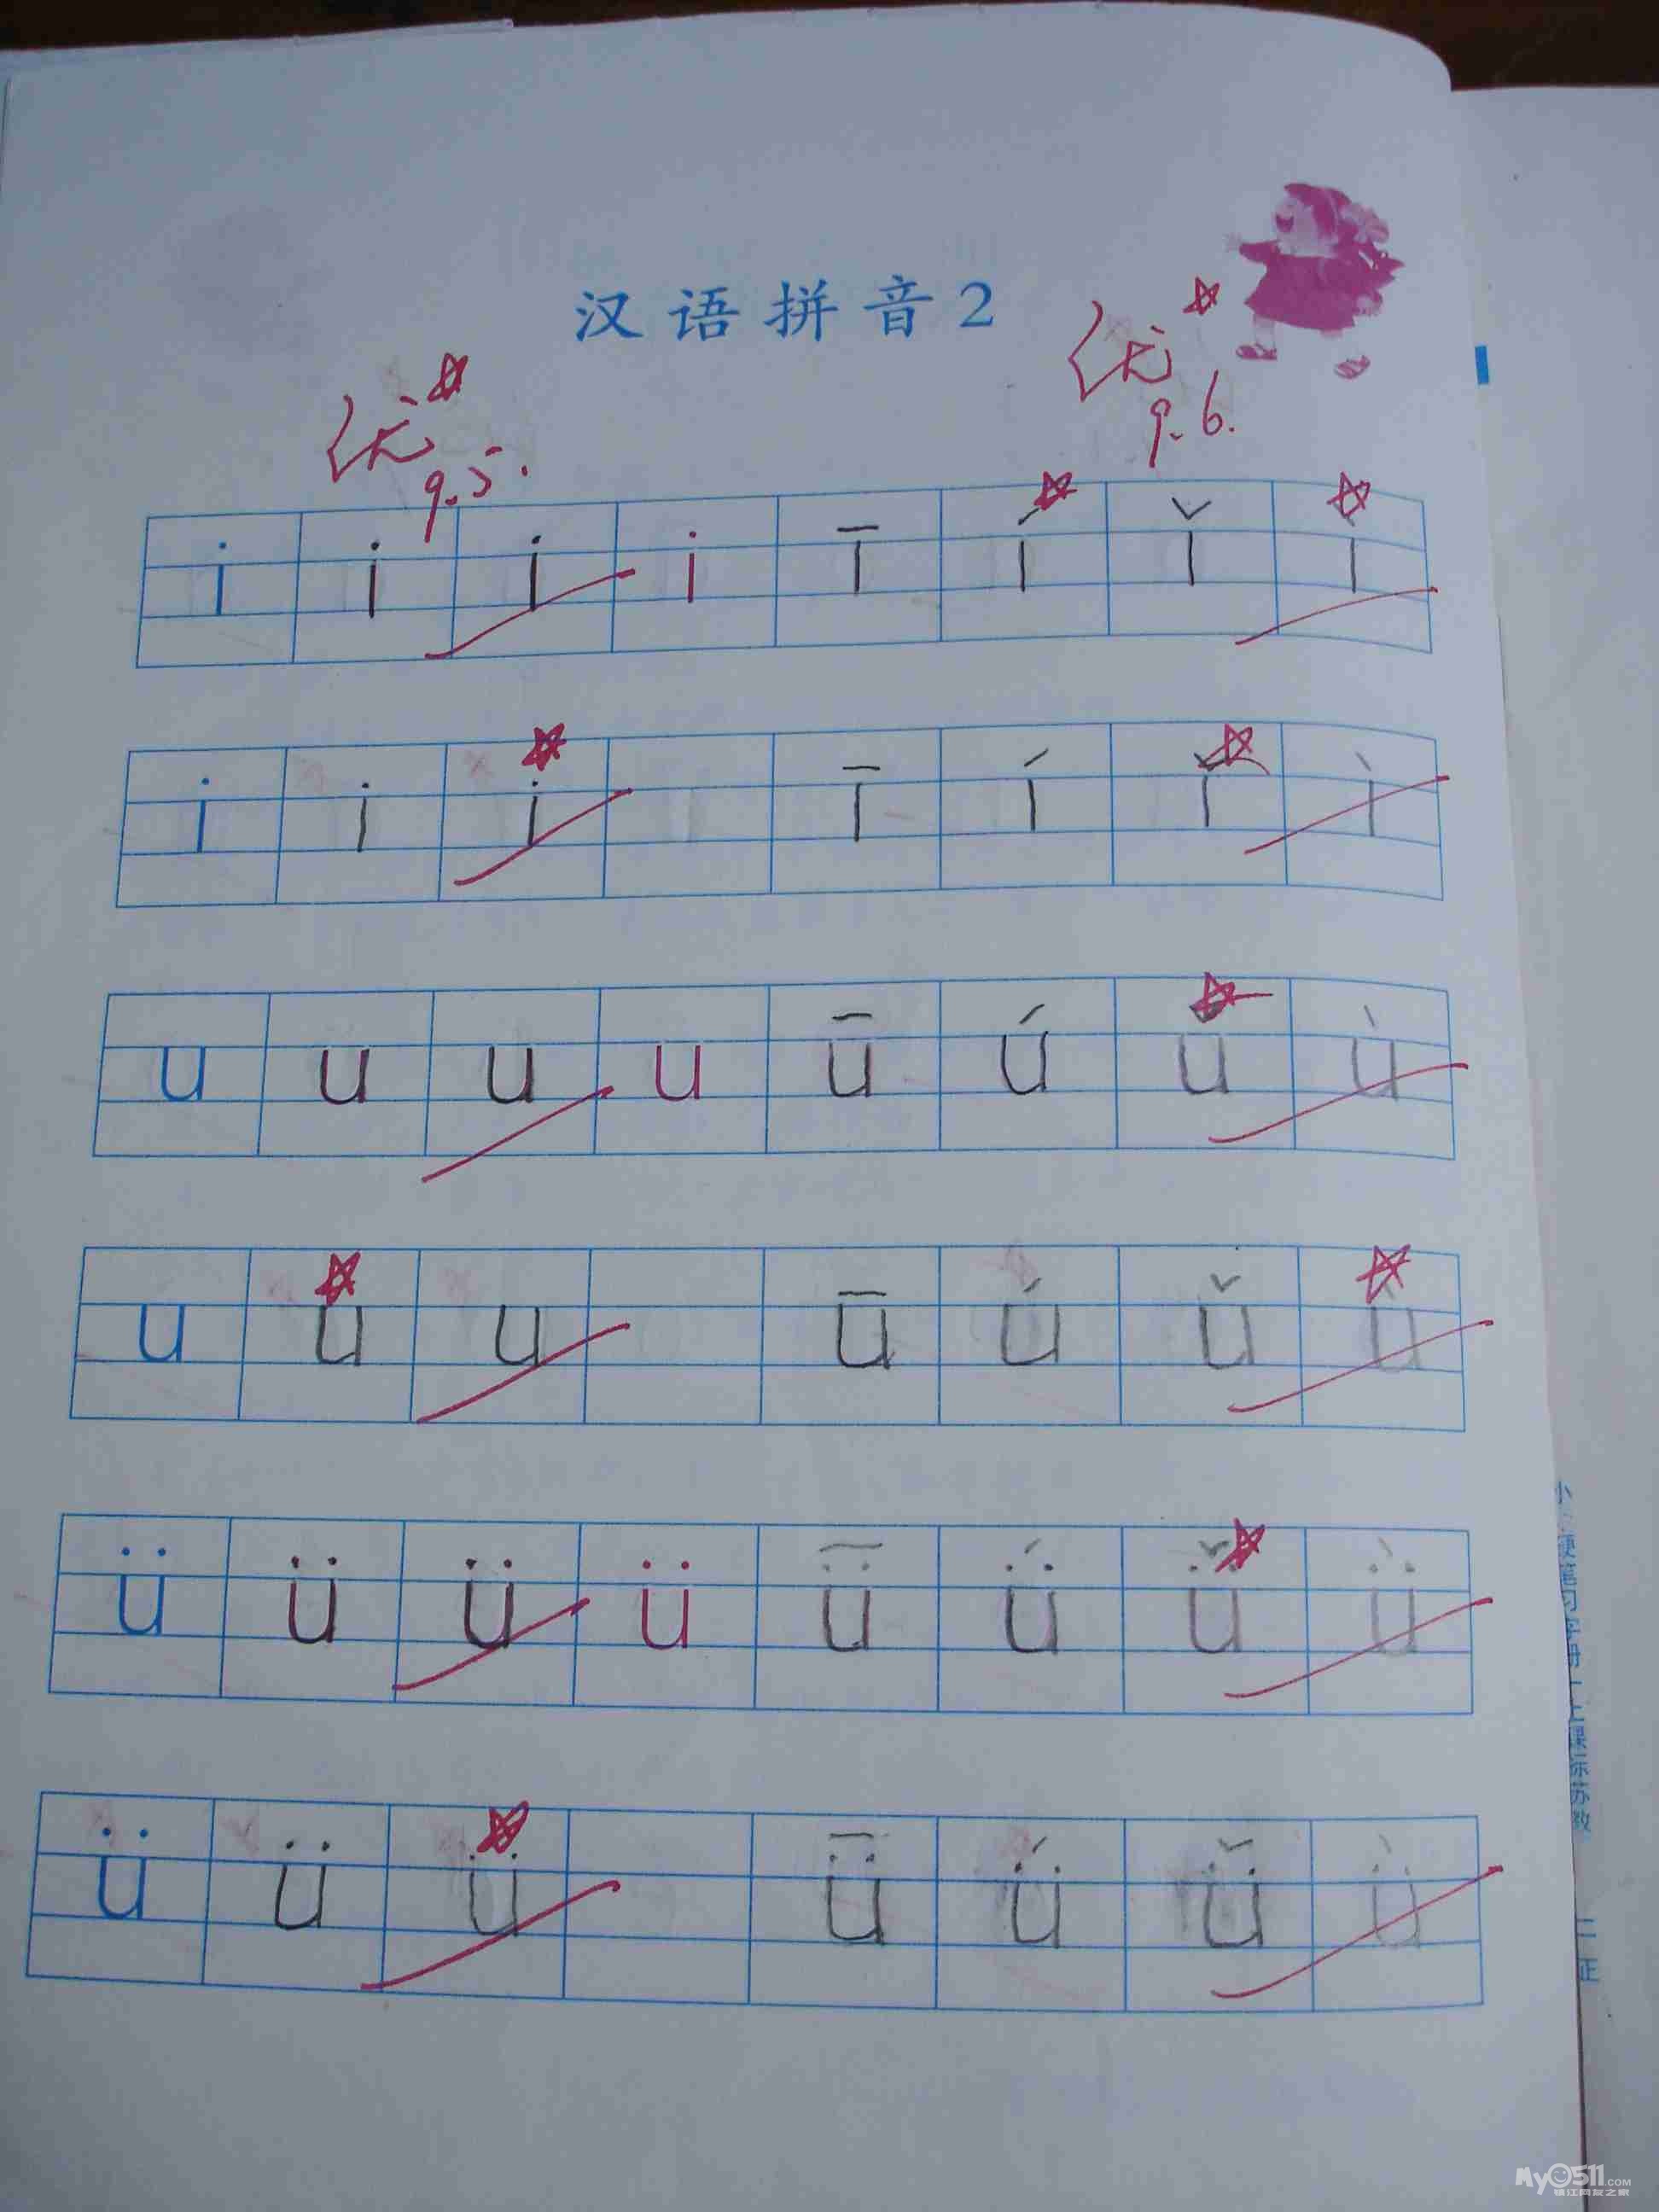 汉语拼音2
优 优
9.5. 9.6.
i i i i ī í ǐ ì
i i i ī í ǐ ì
u u u u ū ú ǔ ù
u u u ū ú ǔ ù
ü ü ü ü ǖ ǘ ǚ ǜ
ü ü ü ǖ ǘ ǚ ǜ
硬笔习字册一上课标苏教
二正
My0511.COM
镇江网友之家